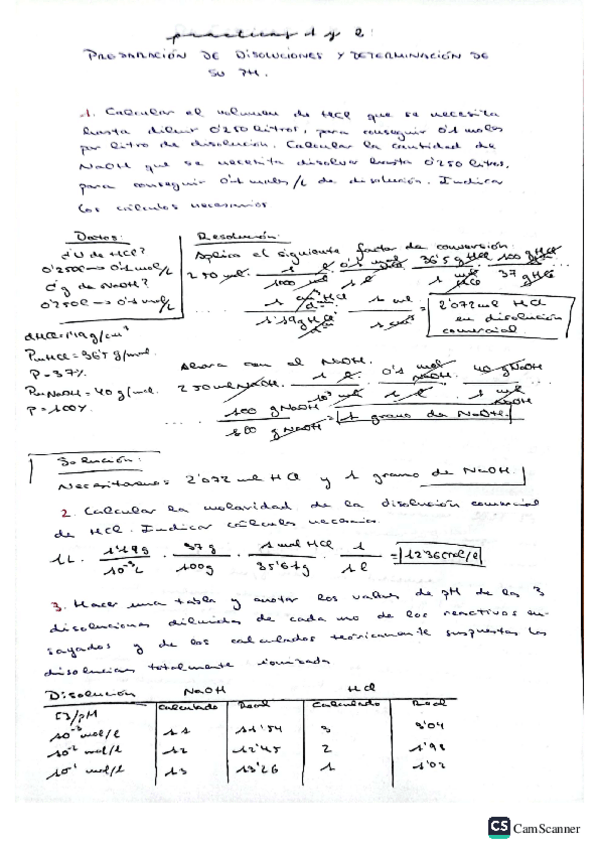 prácticas 1 y 2:
PREPARACIÓN DE DISOLUCIONES Y DETERMINACIÓN DE
SU PH.
1. Calcular el volumen de HCl que se necesita
hasta diluir 0'250 litros, para conseguir 0'1 moles
por litro de disolución. Calcular la cantidad de
NaOH que se necesita disolver hasta 0'250 litros,
para conseguir 0'1 moles/L de disolución. Indicar
los cálculos necesarios
Datos:
¿V de HCl?
0'250l → 0'1 mol/L
¿g de NaOH?
0'250l → 0'1 mol/L
dHCl=1'19g/cm³
PmHCl=36'5 g/mol.
P=37%
PmNaOH=40g/mol.
P=100%
Resolución:
Aplico el siguiente factor de conversión:
250 ml. 1 l / 1000 ml . 0'1 mol / 1 l . 36'5 g HCl / 1 mol HCl . 100 g HCl / 37 g HCl
... 1 cm³ HCl / 1'19g HCl . 1 ml / 1 cm³ = 2'072ml HCl
en disolución
comercial.
Ahora con el NaOH.
250ml NaOH. 1 l / 10³ ml . 0'1 mol NaOH / 1 l . 40 g NaOH / 1 mol NaOH
... 100 g NaOH / 100 g NaOH = 1 gramo de NaOH.
Solución:
Necesitaremos 2'072 ml HCl y 1 gramo de NaOH.
2. Calcular la molaridad de la disolución comercial
de HCl. Indicar cálculos necesarios.
1L. 1'19g / 10⁻³L . 37g / 100g . 1 mol HCl / 35'61g . 1 / 1l =
3. Hacer una tabla y anotar los values de pH de las 3
disoluciones diluidas de cada uno de los reactivos en-
sayados y de los calculados teóricamente supuestas las
disoluciones totalmente ionizada
Disolución NaOH HCl
[]/pH Calculado Real Calculado Real
10⁻³ mol/l 11 11'54 3 3'04
10⁻² mol/l 12 12'45 2 1'98
10⁻¹ mol/l 13 13'26 1 1'02
CS CamScanner